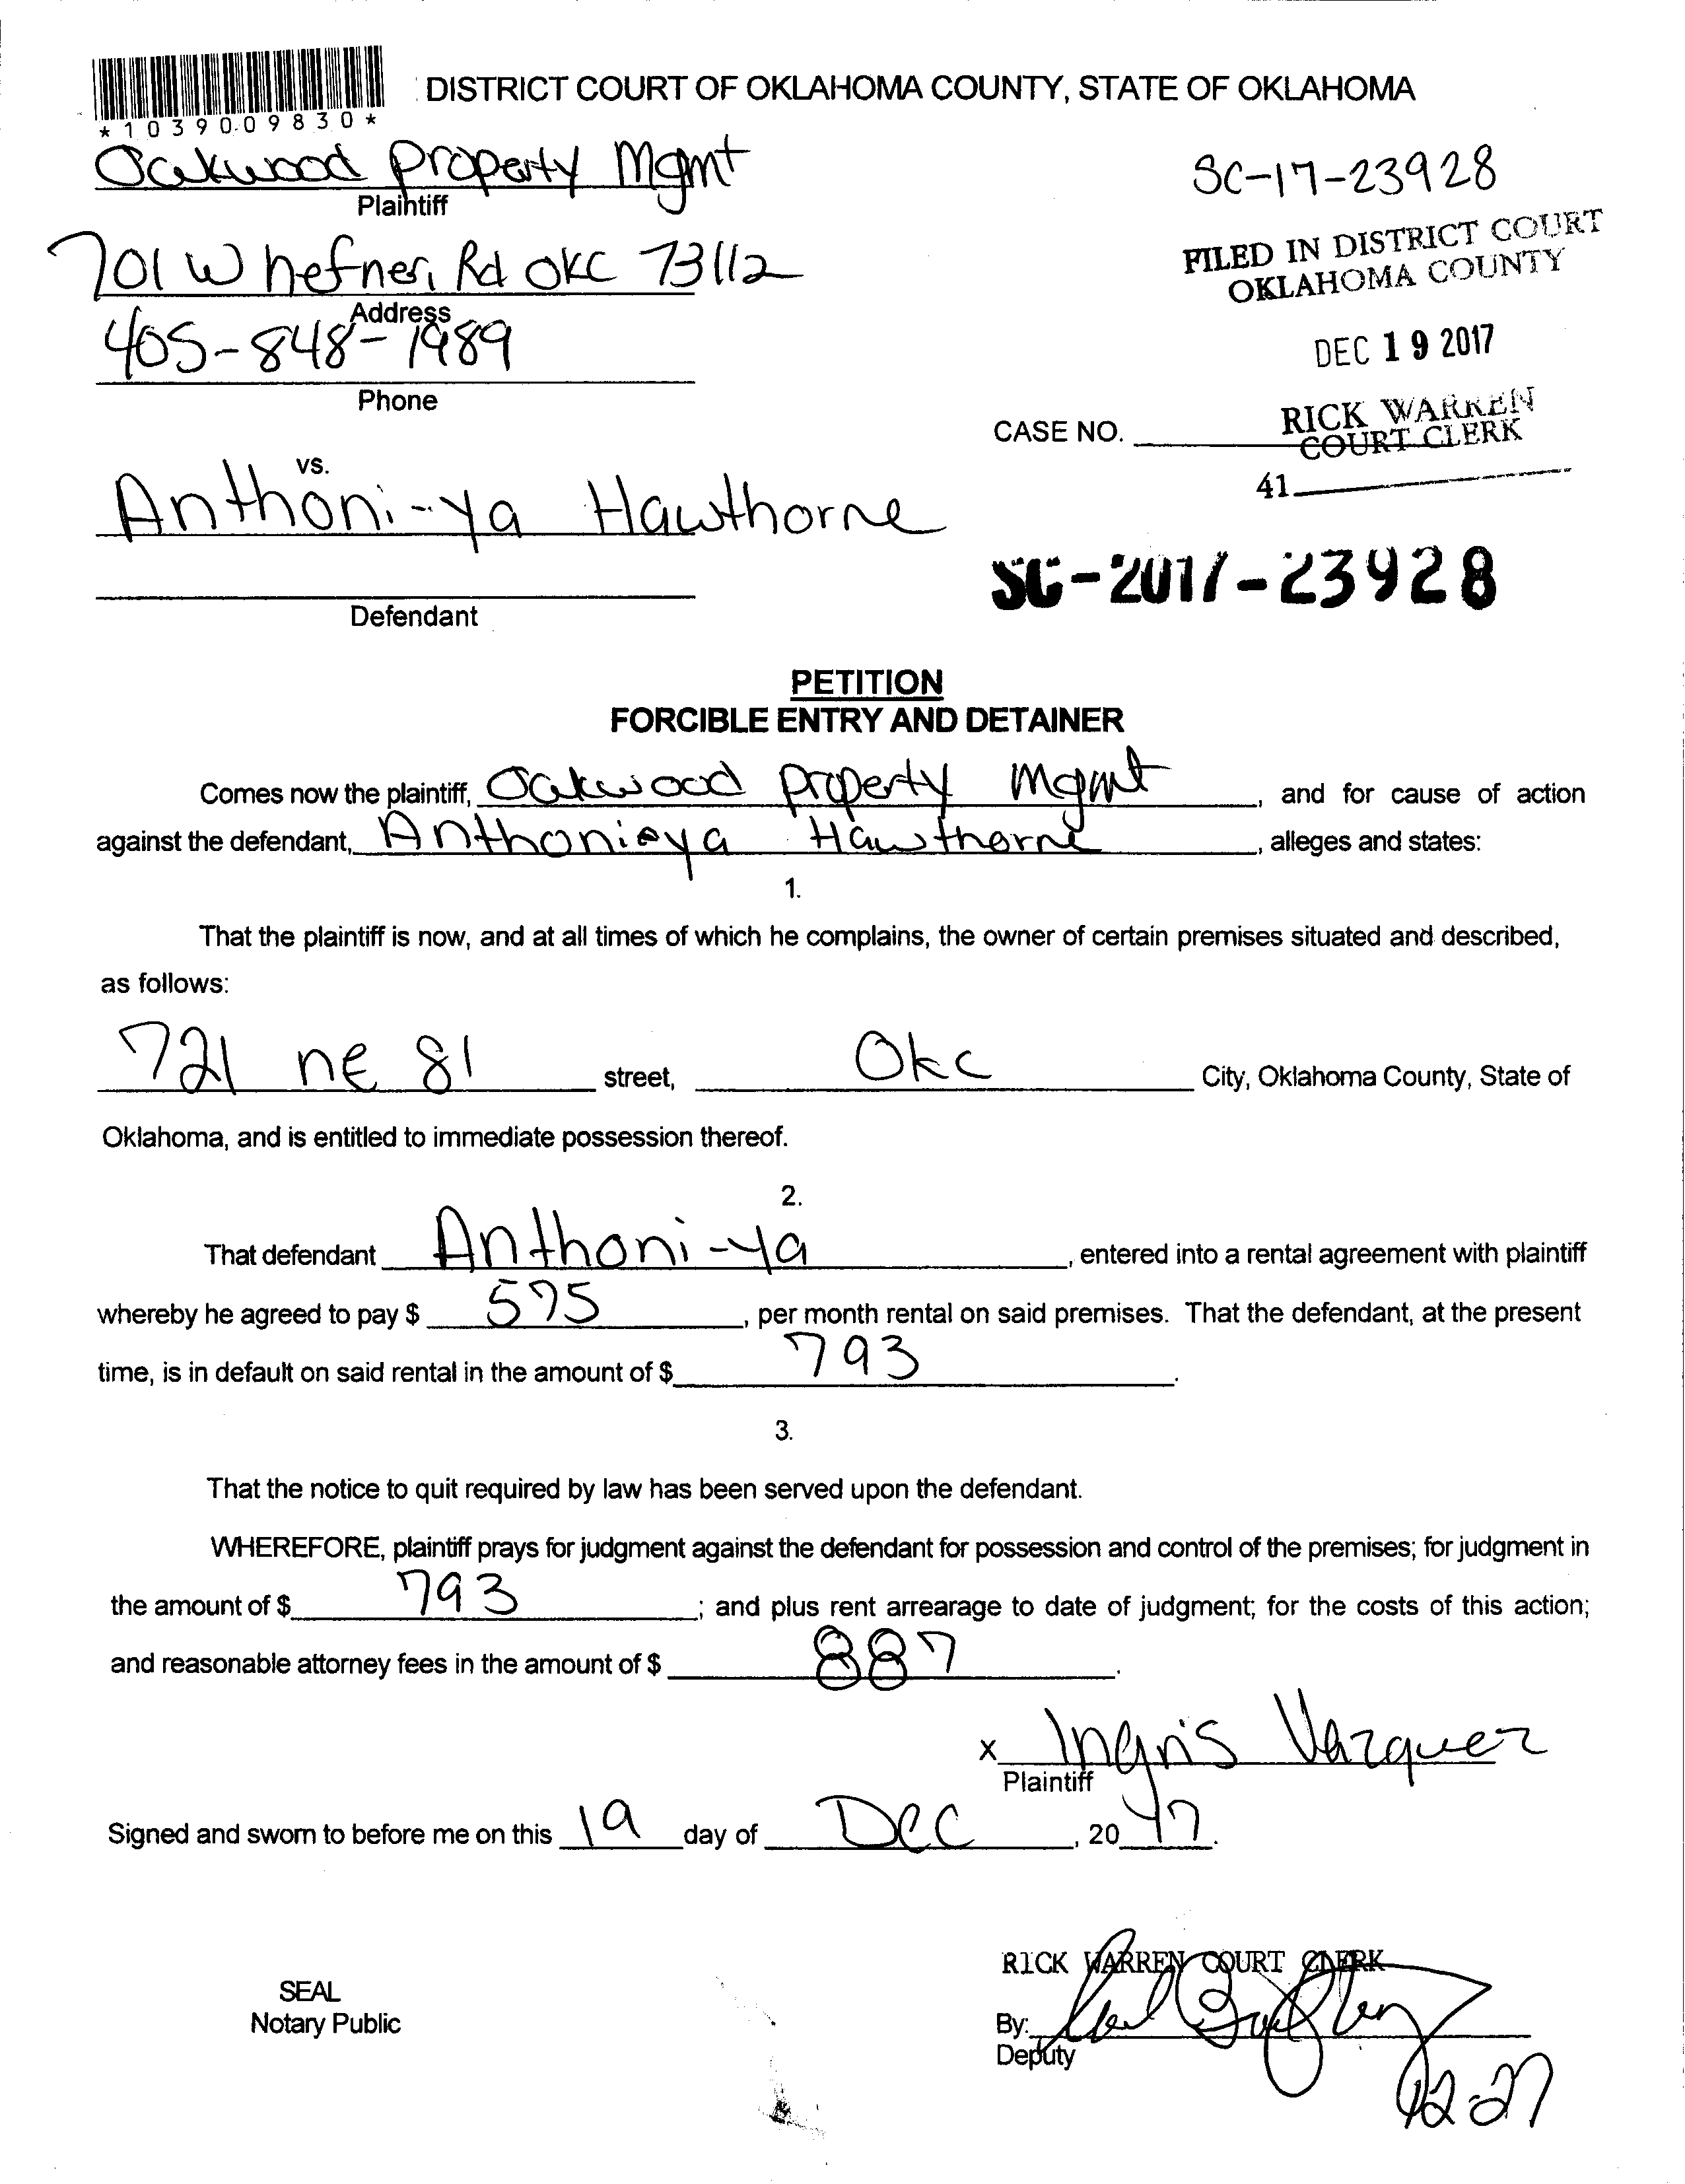 DISTRICT COURT OF OKLAHOMA COUNTY, STATE OF OKLAHOMA
*1039009830*
Oakwood Property Mgmt
Plaintiff
SC-17-23928
701 W hefner Rd OKC 73112
Address
FILED IN DISTRICT COURT
OKLAHOMA COUNTY
405-848-1989
Phone
DEC 19 2017
RICK WARREN
COURT CLERK
CASE NO.
41
vs.
Anthoni-ya Hawthorne
Defendant
SC-2017-23928
PETITION
FORCIBLE ENTRY AND DETAINER
Comes now the plaintiff, Oakwood property Mgmt, and for cause of action
against the defendant, Anthoni-ya Hawthorne, alleges and states:
1.
That the plaintiff is now, and at all times of which he complains, the owner of certain premises situated and described,
as follows:
721 NE 81 street, OKC City, Oklahoma County, State of
Oklahoma, and is entitled to immediate possession thereof.
2.
That defendant Anthoni-ya, entered into a rental agreement with plaintiff
whereby he agreed to pay $ 575, per month rental on said premises. That the defendant, at the present
time, is in default on said rental in the amount of $ 793.
3.
That the notice to quit required by law has been served upon the defendant.
WHEREFORE, plaintiff prays for judgment against the defendant for possession and control of the premises; for judgment in
the amount of $ 793; and plus rent arrearage to date of judgment; for the costs of this action;
and reasonable attorney fees in the amount of $ 887.
x Ingris Vazquez
Plaintiff
Signed and sworn to before me on this 19 day of Dec, 2017.
RICK WARREN COURT CLERK
SEAL
Notary Public
By:
Deputy
12-27